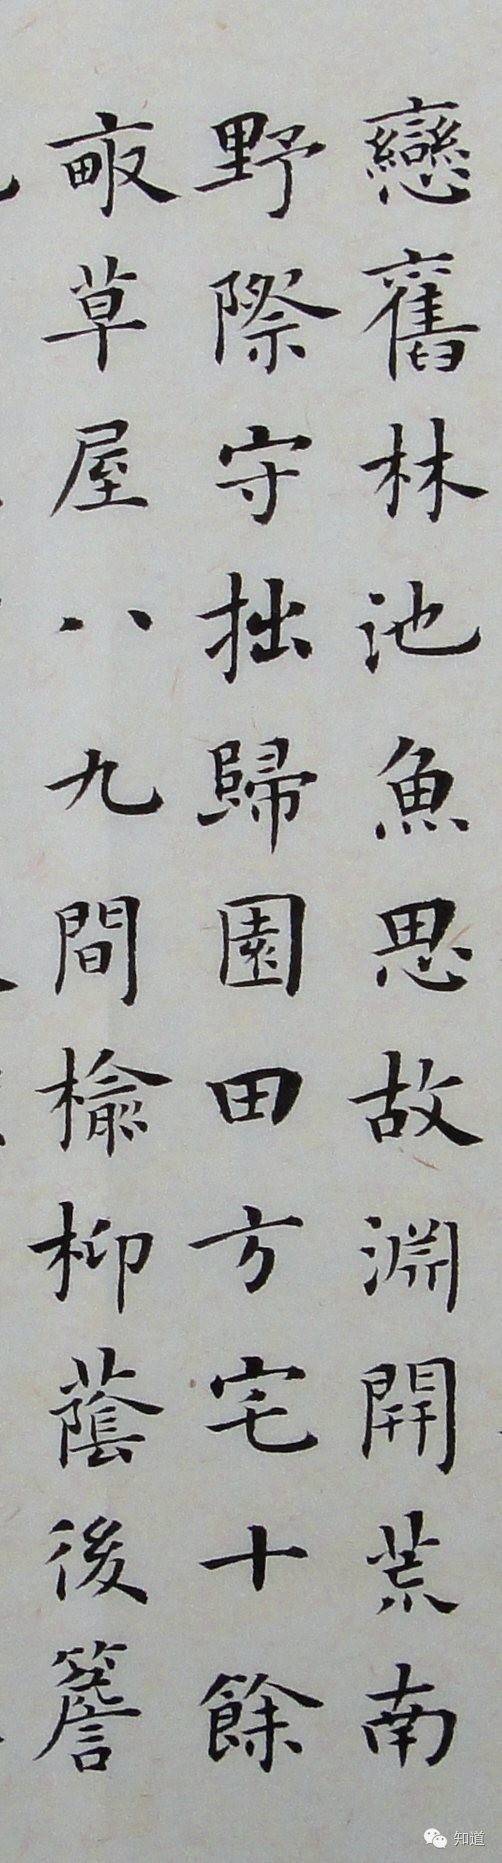 戀舊林池魚思故淵開荒南
野際守拙歸園田方宅十餘
畝草屋八九間榆柳蔭後簷
知道